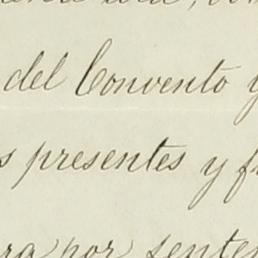 del Convento y
s presentes y f
ra por senten